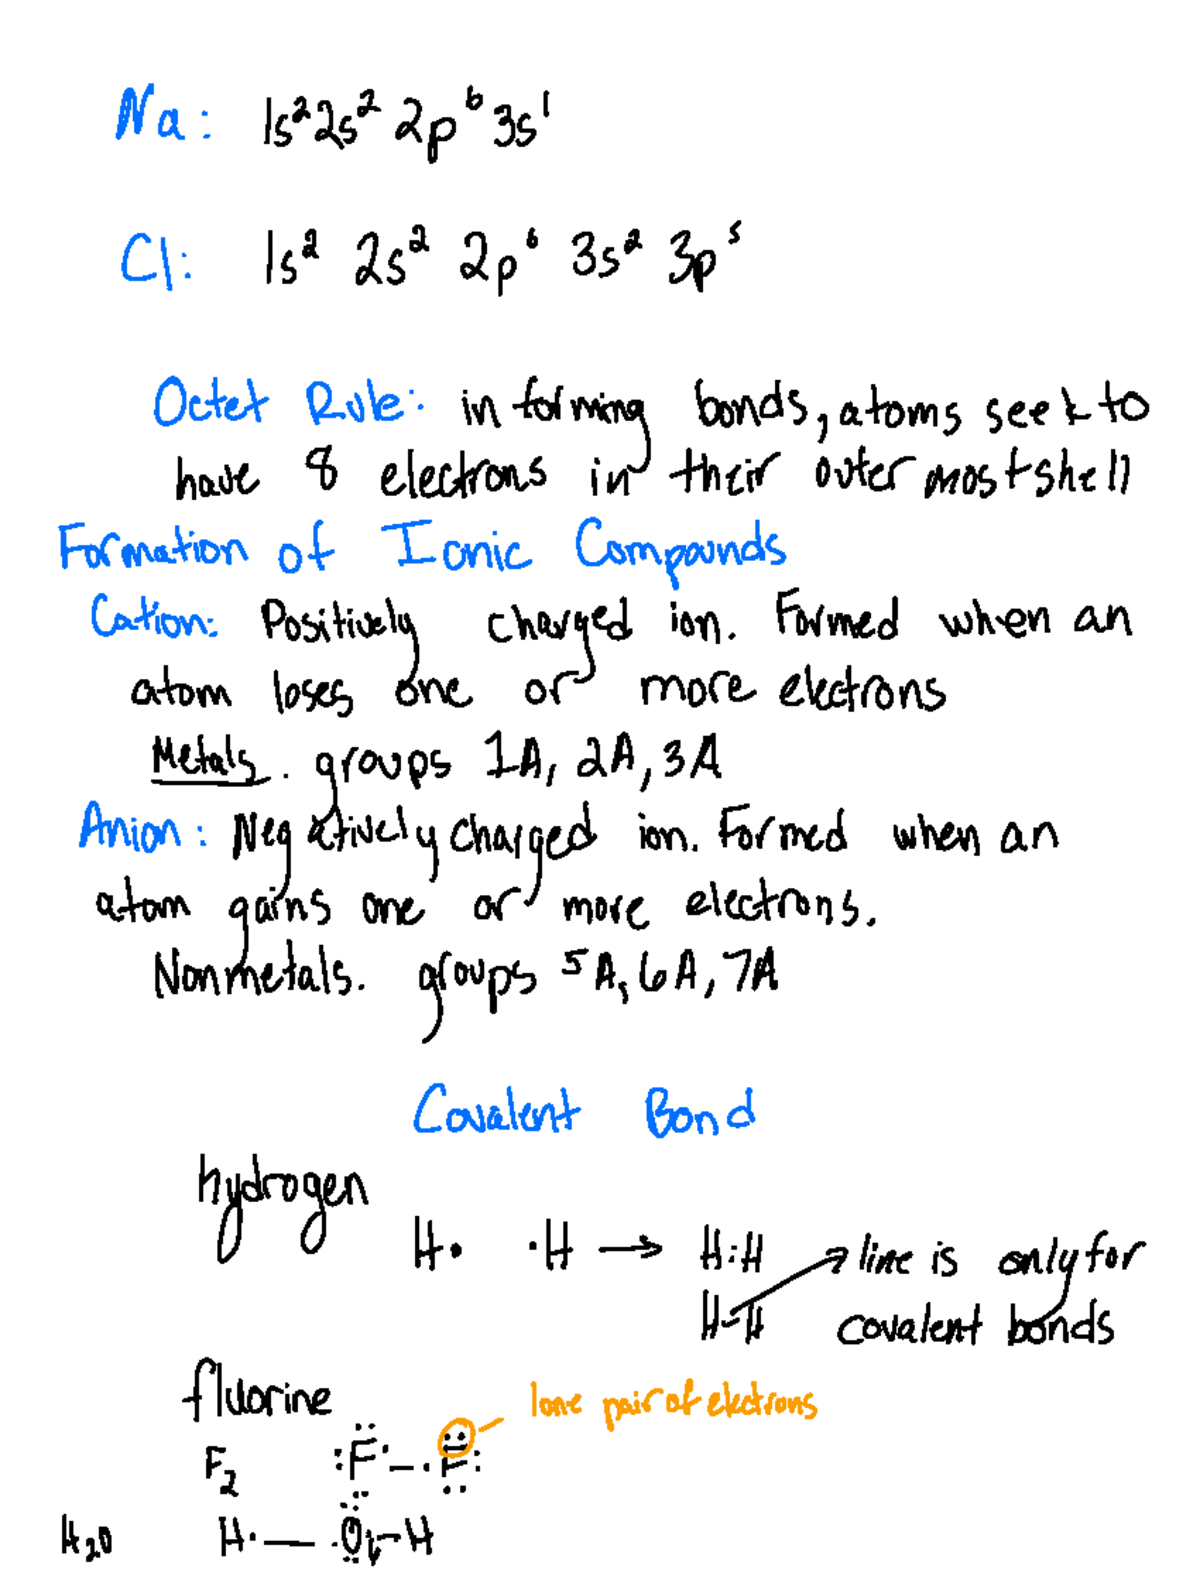 Na: 1s² 2s² 2p⁶ 3s¹
Cl: 1s² 2s² 2p⁶ 3s² 3p⁵
Octet Rule: in forming bonds, atoms seek to
have 8 electrons in their outermost shell
Formation of Ionic Compounds
Cation: Positively charged ion. Formed when an
atom loses one or more electrons
Metals. groups 1A, 2A, 3A
Anion: Negatively charged ion. Formed when an
atom gains one or more electrons.
Nonmetals. groups 5A, 6A, 7A
Covalent Bond
hydrogen
H· ·H → H:H
H-H → line is only for
covalent bonds
fluorine
lone pair of electrons
F₂ :F·—·F:
H₂O H·—·O·—H